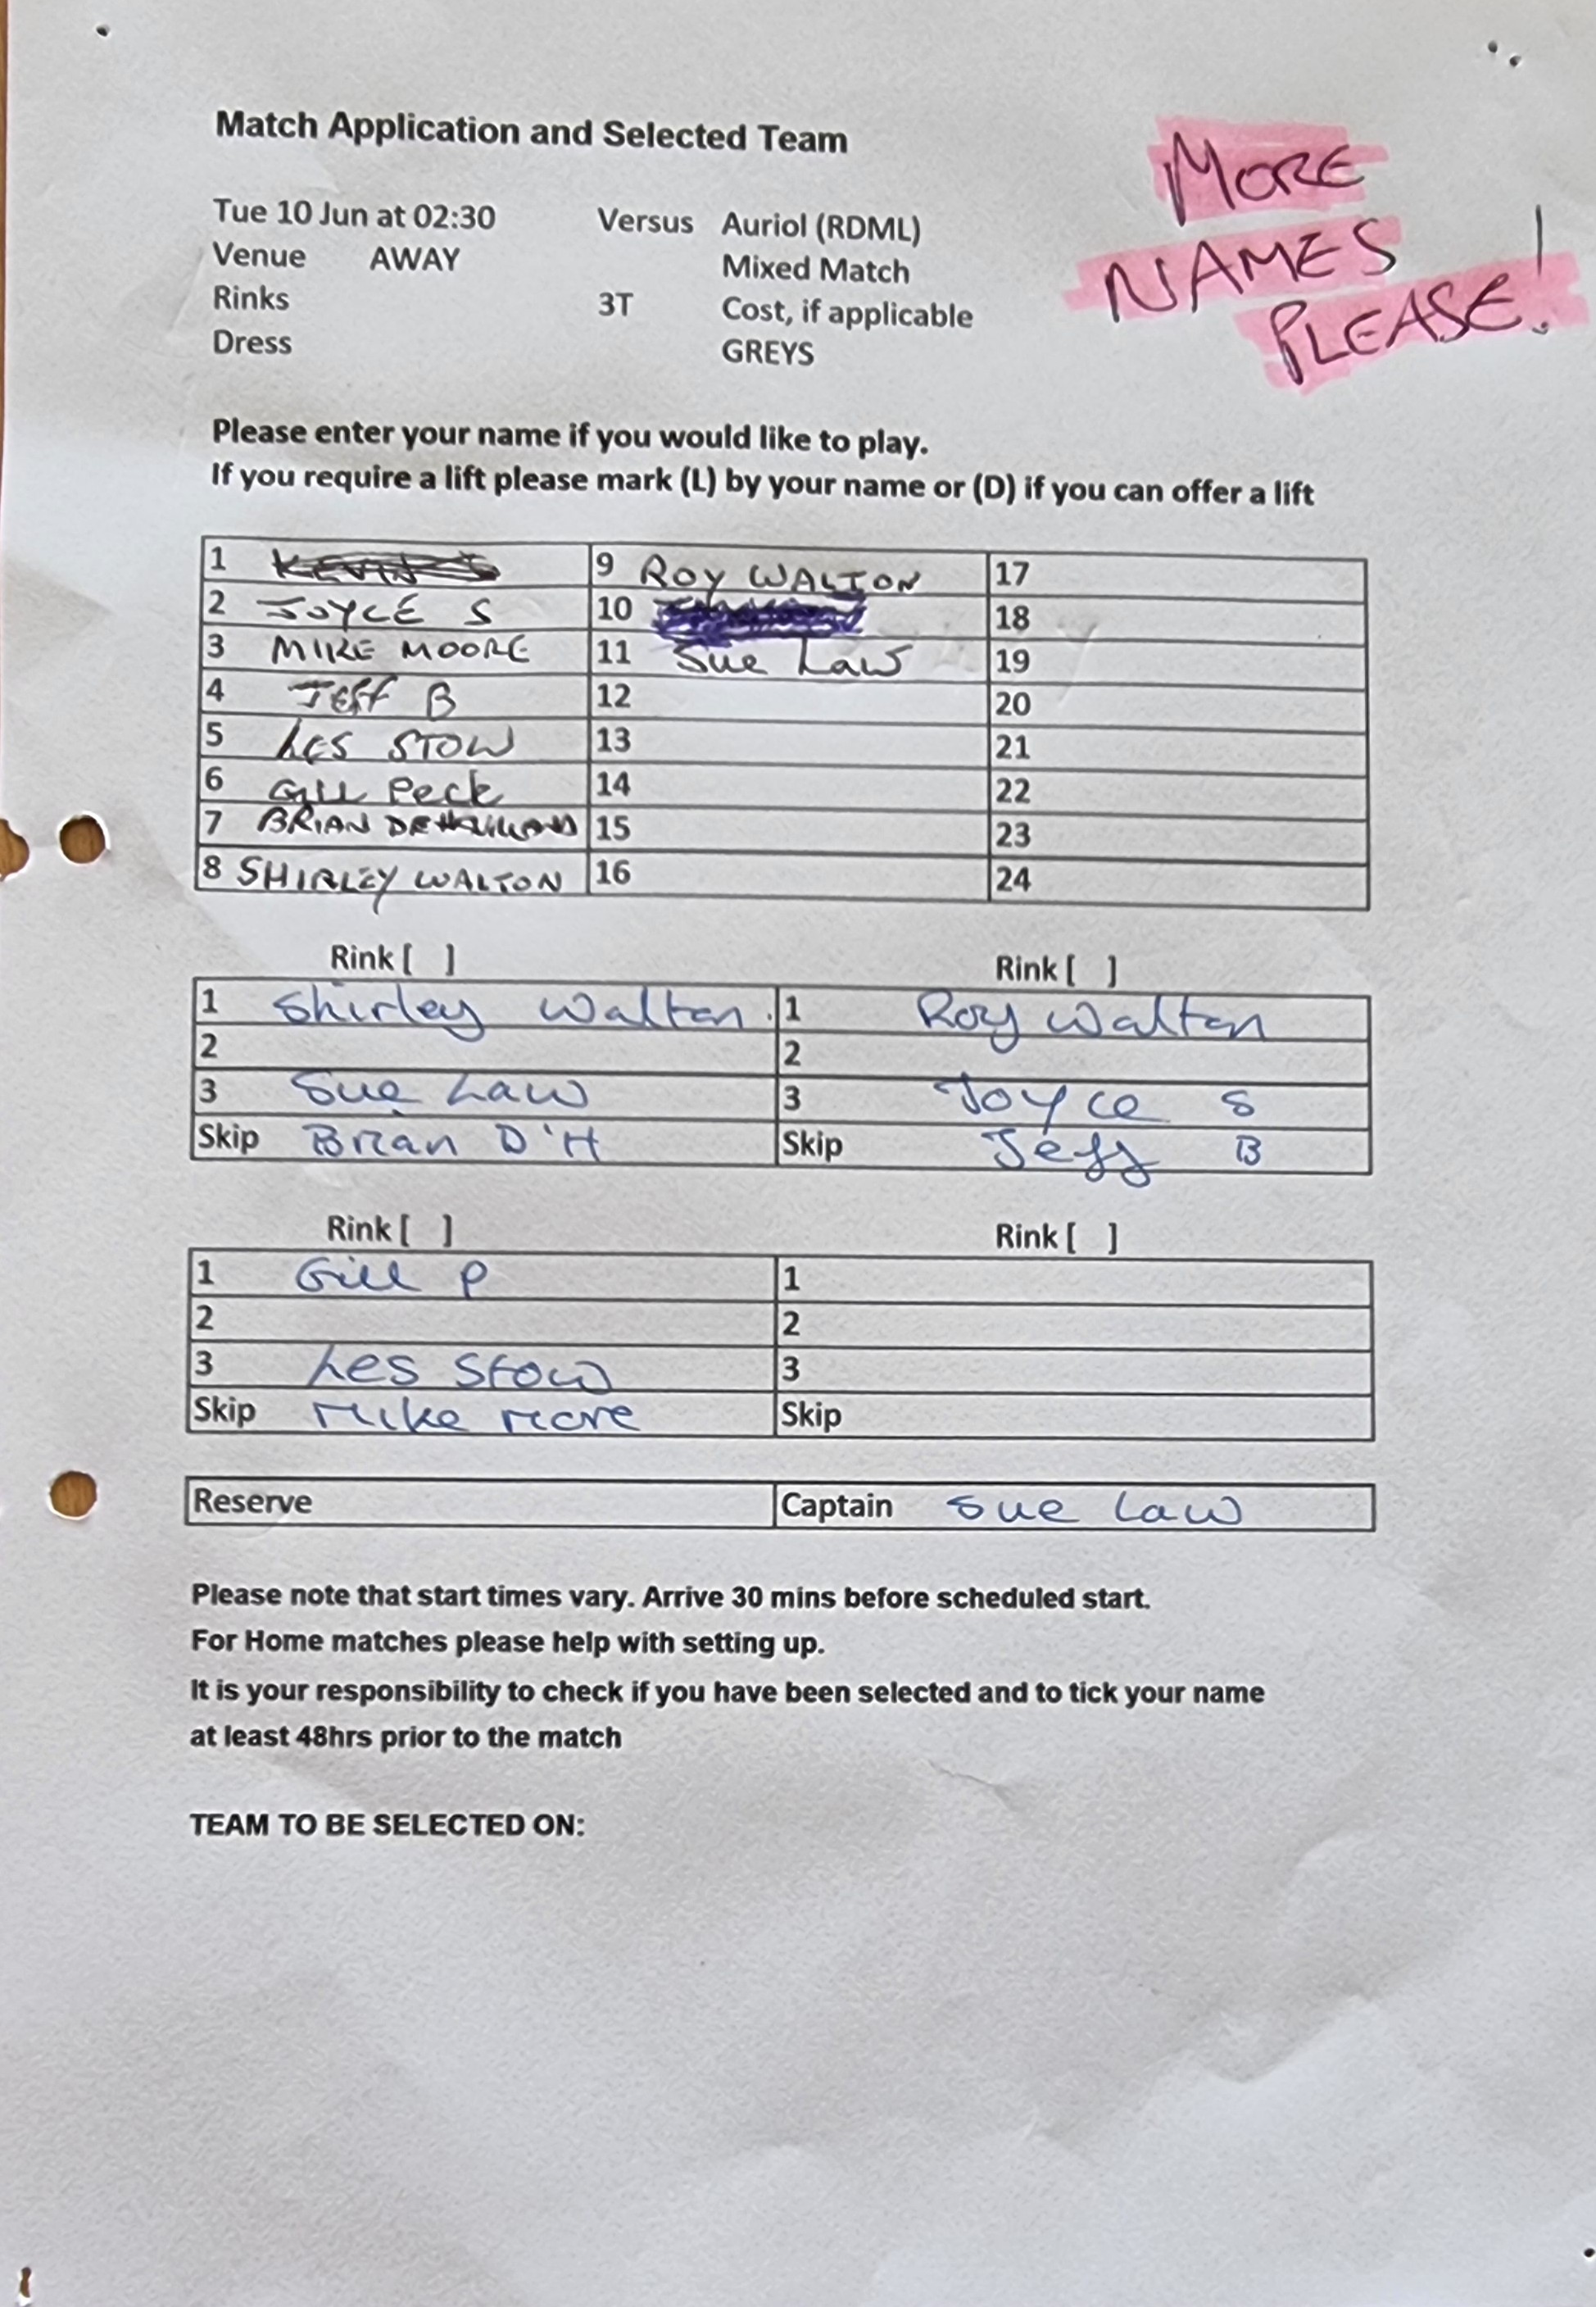 Match Application and Selected Team
MORE
NAMES
PLEASE!
Tue 10 Jun at 02:30 Versus Auriol (RDML)
Venue AWAY Mixed Match
Rinks 3T Cost, if applicable
Dress GREYS
Please enter your name if you would like to play.
If you require a lift please mark (L) by your name or (D) if you can offer a lift
1 9 ROY WALTON 17
2 JOYCE S 10 18
3 MIKE MOORE 11 Sue Law 19
4 JEFF B 12 20
5 LES STOW 13 21
6 GILL Peck 14 22
7 BRIAN 15 23
8 SHIRLEY WALTON 16 24
Rink [ ] Rink [ ]
1 Shirley Walton 1 Roy Walton
2 2
3 Sue Law 3 Joyce S
Skip Brian D'H Skip Jeff B
Rink [ ] Rink [ ]
1 Gill P 1
2 2
3 Les Stow 3
Skip Mike More Skip
Reserve Captain Sue Law
Please note that start times vary. Arrive 30 mins before scheduled start.
For Home matches please help with setting up.
It is your responsibility to check if you have been selected and to tick your name
at least 48hrs prior to the match
TEAM TO BE SELECTED ON: